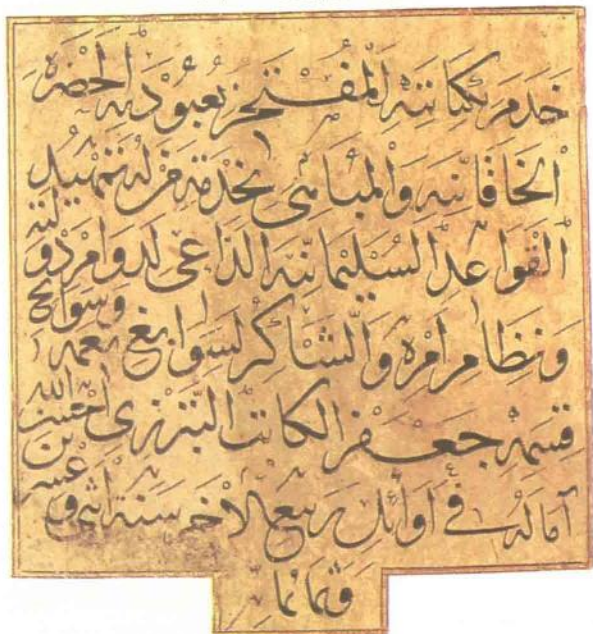 خَدَمَ بِكِتَابَتِهِ الْمُفْتَخِرُ بِعُبُودِيَّةِ الْحَضْرَةِ
الْخَاقَانِيَّةِ وَالْمُبَاهِي بِخِدْمَةِ مَنْ لَهُ تَمْهِيدُ
الْقَوَاعِدِ السُّلَيْمَانِيَّةِ الدَّاعِي لِدَوَامِ دَوْلَتِهِ
وَنِظَامِ اَمْرِهِ وَالشَّاكِرُ لِسَوَابِغِ نِعَمِهِ وَسَوَانِحِ
قِسَمِهِ جَعْفَر الْكَاتِب التَّبْرِيزِي اَحْسَنَ اللهُ
آمَالَهُ فِي اَوَائِلِ رَبِيعِ الْاٰخَرِ سَنَةِ اثْنَي وَعِشْرِينَ
وَثَمَانِمَا